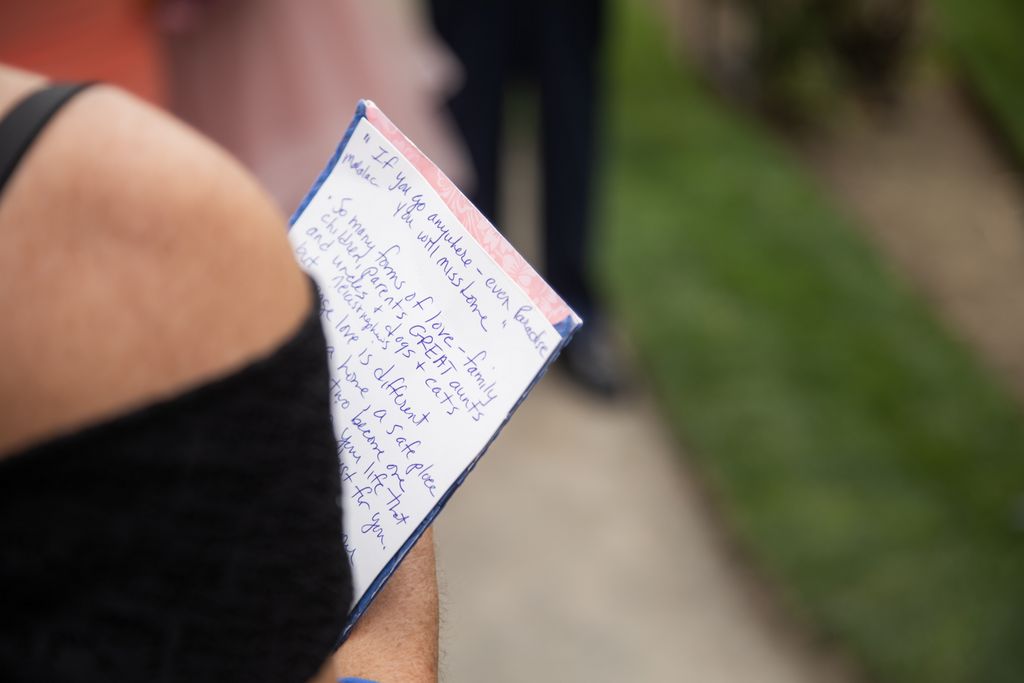 "If you go anywhere - even Paradise
you will miss home"
So many forms of love - family
children, parents GREAT aunts
and uncles + dogs + cats
but
love is different
home a safe place
two become one
your life that
for you.